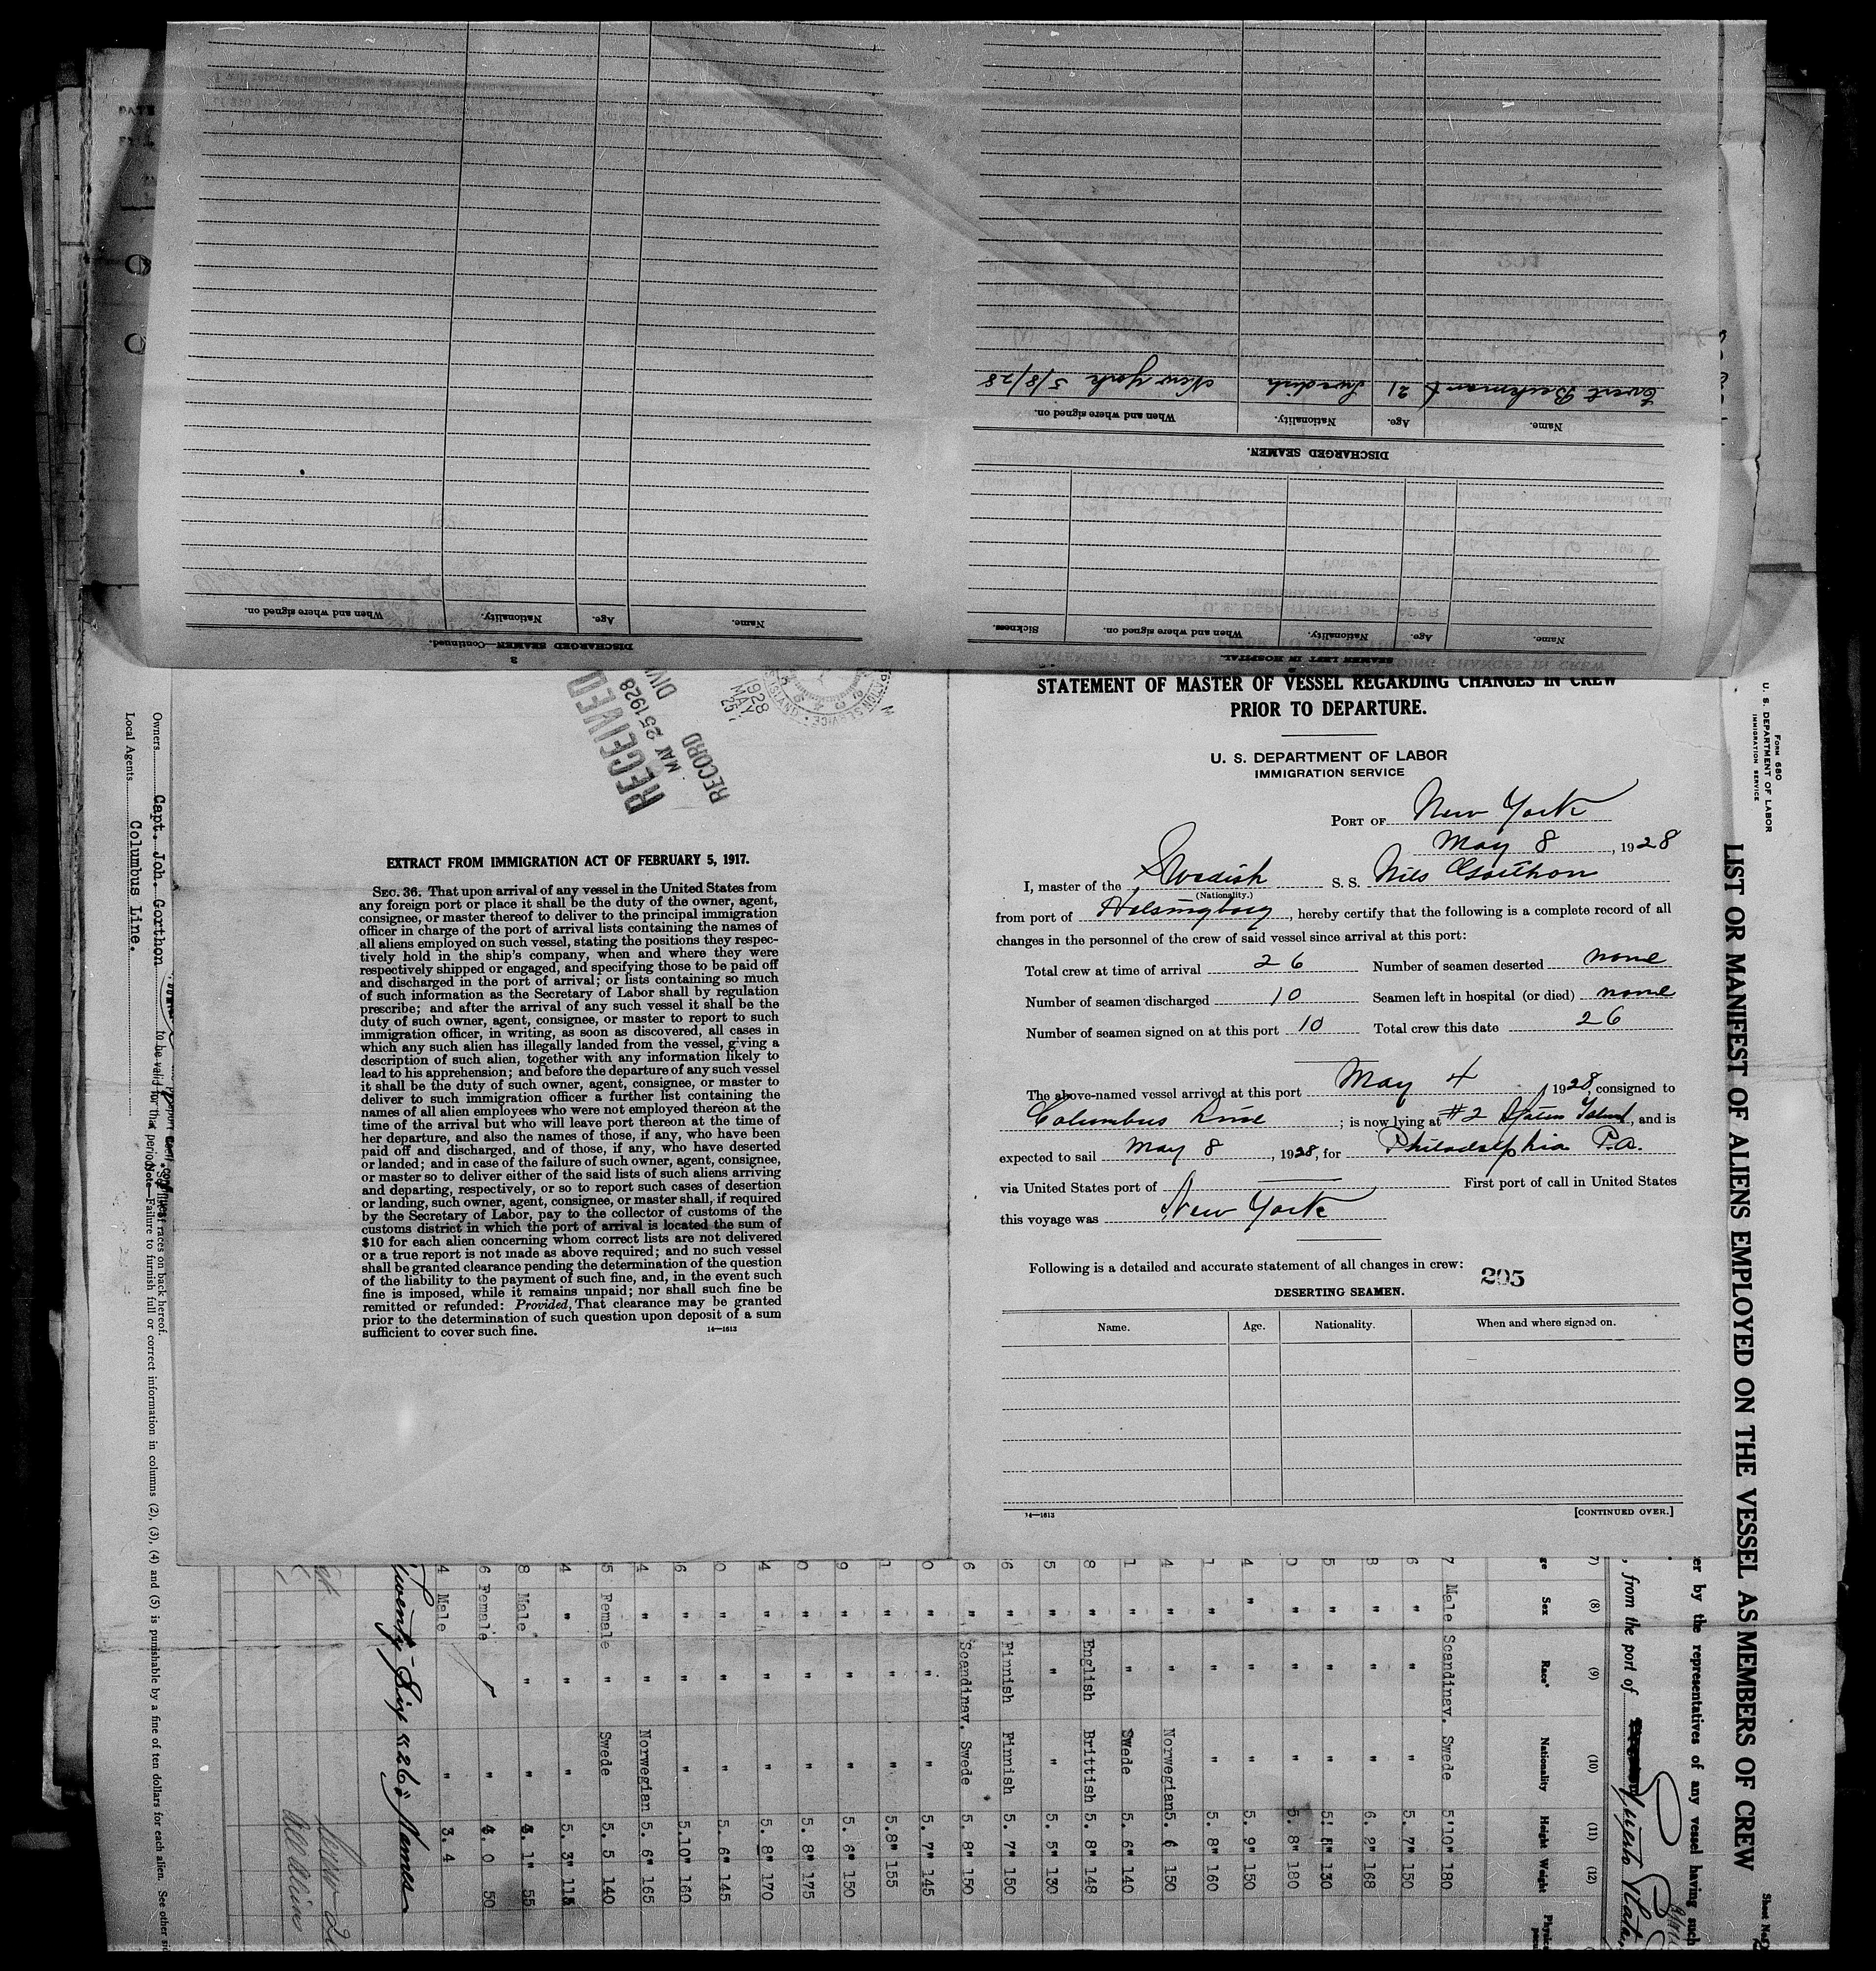 DISCHARGED SEAMEN—Continued.
3
Name.
Age.
Nationality.
When and where signed on.
SEAMEN LEFT IN HOSPITAL.
Name.
Age.
Nationality.
When and where signed on.
Sickness.
DISCHARGED SEAMEN.
Name.
Age.
Nationality.
When and where signed on.
Evert 21 Swedish New York 5/8/28
RECEIVED
MAY 25 1928
RECORD
MAY
1928
STATEMENT OF MASTER OF VESSEL REGARDING CHANGES IN CREW
PRIOR TO DEPARTURE.
U. S. DEPARTMENT OF LABOR
IMMIGRATION SERVICE
PORT OF New York
May 8, 1928
I, master of the Swedish S. S. Nils Gorthon
(Nationality.)
from port of Helsingborg, hereby certify that the following is a complete record of all
changes in the personnel of the crew of said vessel since arrival at this port:
Total crew at time of arrival 26 Number of seamen deserted none
Number of seamen discharged 10 Seamen left in hospital (or died) none
Number of seamen signed on at this port 10 Total crew this date 26
The above-named vessel arrived at this port May 4, 1928, consigned to
Columbus Line; is now lying at #2, and is
expected to sail May 8, 1928, for Philadelphia Pa.
via United States port of First port of call in United States
this voyage was New York
Following is a detailed and accurate statement of all changes in crew:
205
DESERTING SEAMEN.
Name. Age. Nationality. When and where signed on.
14—1613
[CONTINUED OVER.]
EXTRACT FROM IMMIGRATION ACT OF FEBRUARY 5, 1917.
SEC. 36. That upon arrival of any vessel in the United States from
any foreign port or place it shall be the duty of the owner, agent,
consignee, or master thereof to deliver to the principal immigration
officer in charge of the port of arrival lists containing the names of
all aliens employed on such vessel, stating the positions they respec-
tively hold in the ship's company, when and where they were
respectively shipped or engaged, and specifying those to be paid off
and discharged in the port of arrival; or lists containing so much
of such information as the Secretary of Labor shall by regulation
prescribe; and after the arrival of any such vessel it shall be the
duty of such owner, agent, consignee, or master to report to such
immigration officer, in writing, as soon as discovered, all cases in
which any such alien has illegally landed from the vessel, giving a
description of such alien, together with any information likely to
lead to his apprehension; and before the departure of any such vessel
it shall be the duty of such owner, agent, consignee, or master to
deliver to such immigration officer a further list containing the
names of all alien employees who were not employed thereon at the
time of the arrival but who will leave port thereon at the time of
her departure, and also the names of those, if any, who have been
paid off and discharged, and of those, if any, who have deserted
or landed; and in case of the failure of such owner, agent, consignee,
or master so to deliver either of the said lists of such aliens arriving
and departing, respectively, or so to report such cases of desertion
or landing, such owner, agent, consignee, or master shall, if required
by the Secretary of Labor, pay to the collector of customs of the
customs district in which the port of arrival is located the sum of
$10 for each alien concerning whom correct lists are not delivered
or a true report is not made as above required; and no such vessel
shall be granted clearance pending the determination of the question
of the liability to the payment of such fine, and, in the event such
fine is imposed, while it remains unpaid; nor shall such fine be
remitted or refunded: Provided, That clearance may be granted
prior to the determination of such question upon deposit of a sum
sufficient to cover such fine.
14—1613
Form 680
U. S. DEPARTMENT OF LABOR
IMMIGRATION SERVICE
LIST OR MANIFEST OF ALIENS EMPLOYED ON THE VESSEL AS MEMBERS OF CREW
Sheet No.
er by the representatives of any vessel having such
, from the port of
(8) (9) (10) (11) (12)
Sex Race* Nationality Height Weight
7 Male Scandinav. Swede 5'10" 180
6 " " " 5. 7" 150
8 " " " 6. 2" 168
5 " " " 5! 8" 130
0 " " " 5. 8" 180
4 " " " 5. 9" 150
1 " " " 5. 8" 160
4 " " Norwegian 5. 6 150
1 " " Swede 5. 6" 140
8 " English Brittish 5. 8" 148
5 " " " 5. 5" 130
6 " Finnish Finnish 5. 7" 150
6 " Scandinav. Swede 5. 8" 150
0 " " " 5. 7" 145
1 " " " 5.8" 155
9 " " " 5. 6" 150
0 " " " 5. 8" 175
4 " " " 5. 8" 170
0 " " " 5. 6" 145
6 " " " 5.10" 160
4 " " Norwegian 5. 6" 165
5 Female " Swede 5. 5 140
4 " " " 5. 3" 115
8 Male " " 4. 1" 55
6 Female " 4. 0 50
4 Male " 3. 4
Twenty Six "26" Names
Owners Capt. Joh. Gorthon
Local Agents Columbus Line.
*See list of races on back hereof.
Note—Failure to furnish full or correct information in columns (2), (3), (4) and (5) is punishable by a fine of ten dollars for each alien. See other si